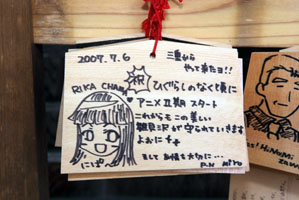 2007.7.6
三重から
やって来たヨ!!
祝
ひぐらしのなく頃に
RIKA CHAMA
アニメⅡ期 スタート
これからもこの美しい
雛見沢が守られていきます
ように
そして 友情も大切に…
にぱ
P.N miro
HiNoMi